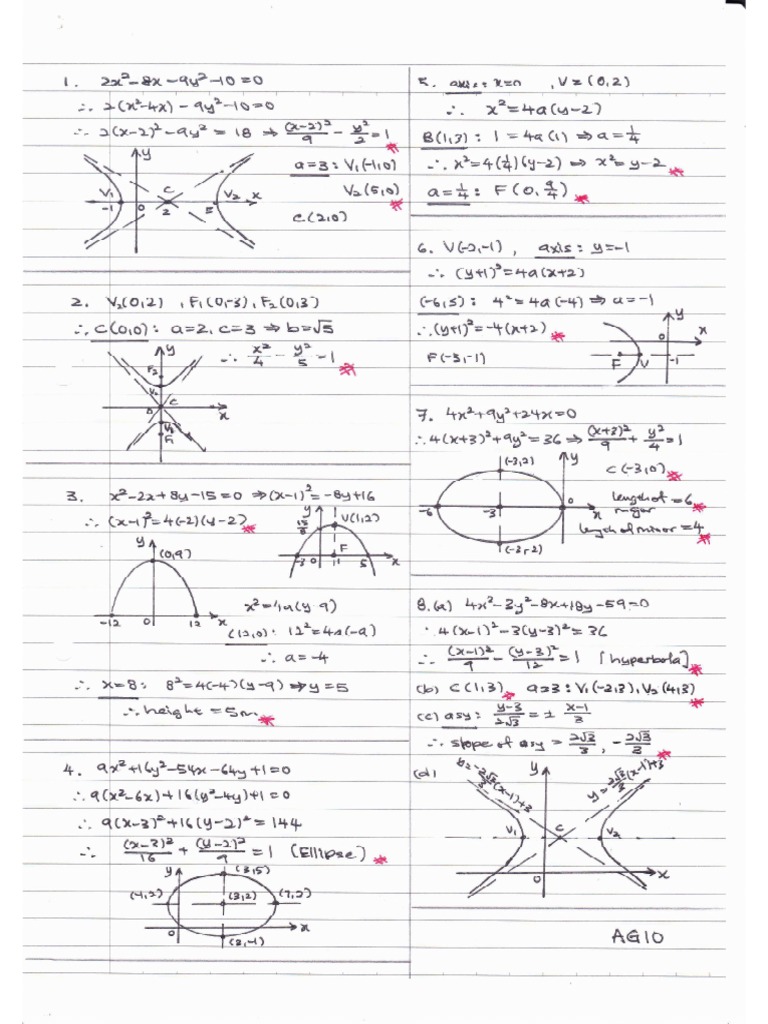 1. 2x²-8x-9y²-10=0
∴ 2(x²-4x)-9y²-10=0
∴ 2(x-2)²-9y²=18 ⇒ (x-2)²/9 - y²/2 = 1
a=3: V₁(-1,0)
V₂(5,0)
C(2,0)
y
V₁ C V₂ x
-1 0 2 5
2. V₂(0,2), F₁(0,-3), F₂(0,3)
∴ C(0,0): a=2, c=3 ⇒ b=√5
∴ x²/4 - y²/5 = -1
y
F₂
V₂
0 C x
V₁
F₁
3. x²-2x+8y-15=0 ⇒ (x-1)²=-8y+16
∴ (x-1)²=4(-2)(y-2)
y
15/8 V(1,2)
F
-3 0 1 5 x
y
(0,9)
-12 0 12 x
x²=4a(y-9)
(12,0): 12²=4a(-9)
∴ a=-4
∴ x=8: 8²=4(-4)(y-9) ⇒ y=5
∴ height = 5m
4. 9x²+16y²-54x-64y+1=0
∴ 9(x²-6x)+16(y²-4y)+1=0
∴ 9(x-3)²+16(y-2)²=144
∴ (x-3)²/16 + (y-2)²/9 = 1 (Ellipse)
y (3,5)
(-1,2) (3,2) (7,2)
0 x
(3,-1)
5. axis: x=0, V=(0,2)
∴ x²=4a(y-2)
B(1,3): 1=4a(1) ⇒ a=1/4
∴ x²=4(1/4)(y-2) ⇒ x²=y-2
a=1/4: F(0, 9/4)
6. V(-2,-1), axis: y=-1
∴ (y+1)²=4a(x+2)
(-6,5): 4²=4a(-4) ⇒ a=-1
∴ (y+1)²=-4(x+2)
F(-3,-1)
y
0 x
F V -1
7. 4x²+9y²+24x=0
∴ 4(x+3)²+9y²=36 ⇒ (x+3)²/9 + y²/4 = 1
(-3,2) y
C(-3,0)
-6 -3 0 x
(-3,-2)
length of major = 6
length of minor = 4
8. (a) 4x²-3y²-8x+18y-59=0
∴ 4(x-1)²-3(y-3)²=36
∴ (x-1)²/9 - (y-3)²/12 = 1 [hyperbola]
(b) C(1,3) a=3: V₁(-2,3), V₂(4,3)
(c) asy: (y-3)/2√3 = ± (x-1)/3
∴ slope of asy = 2√3/3, -2√3/3
(d) y=-2√3/3(x-1)+3 y y=2√3/3(x-1)+3
V₁ C V₂
0 x
AG10